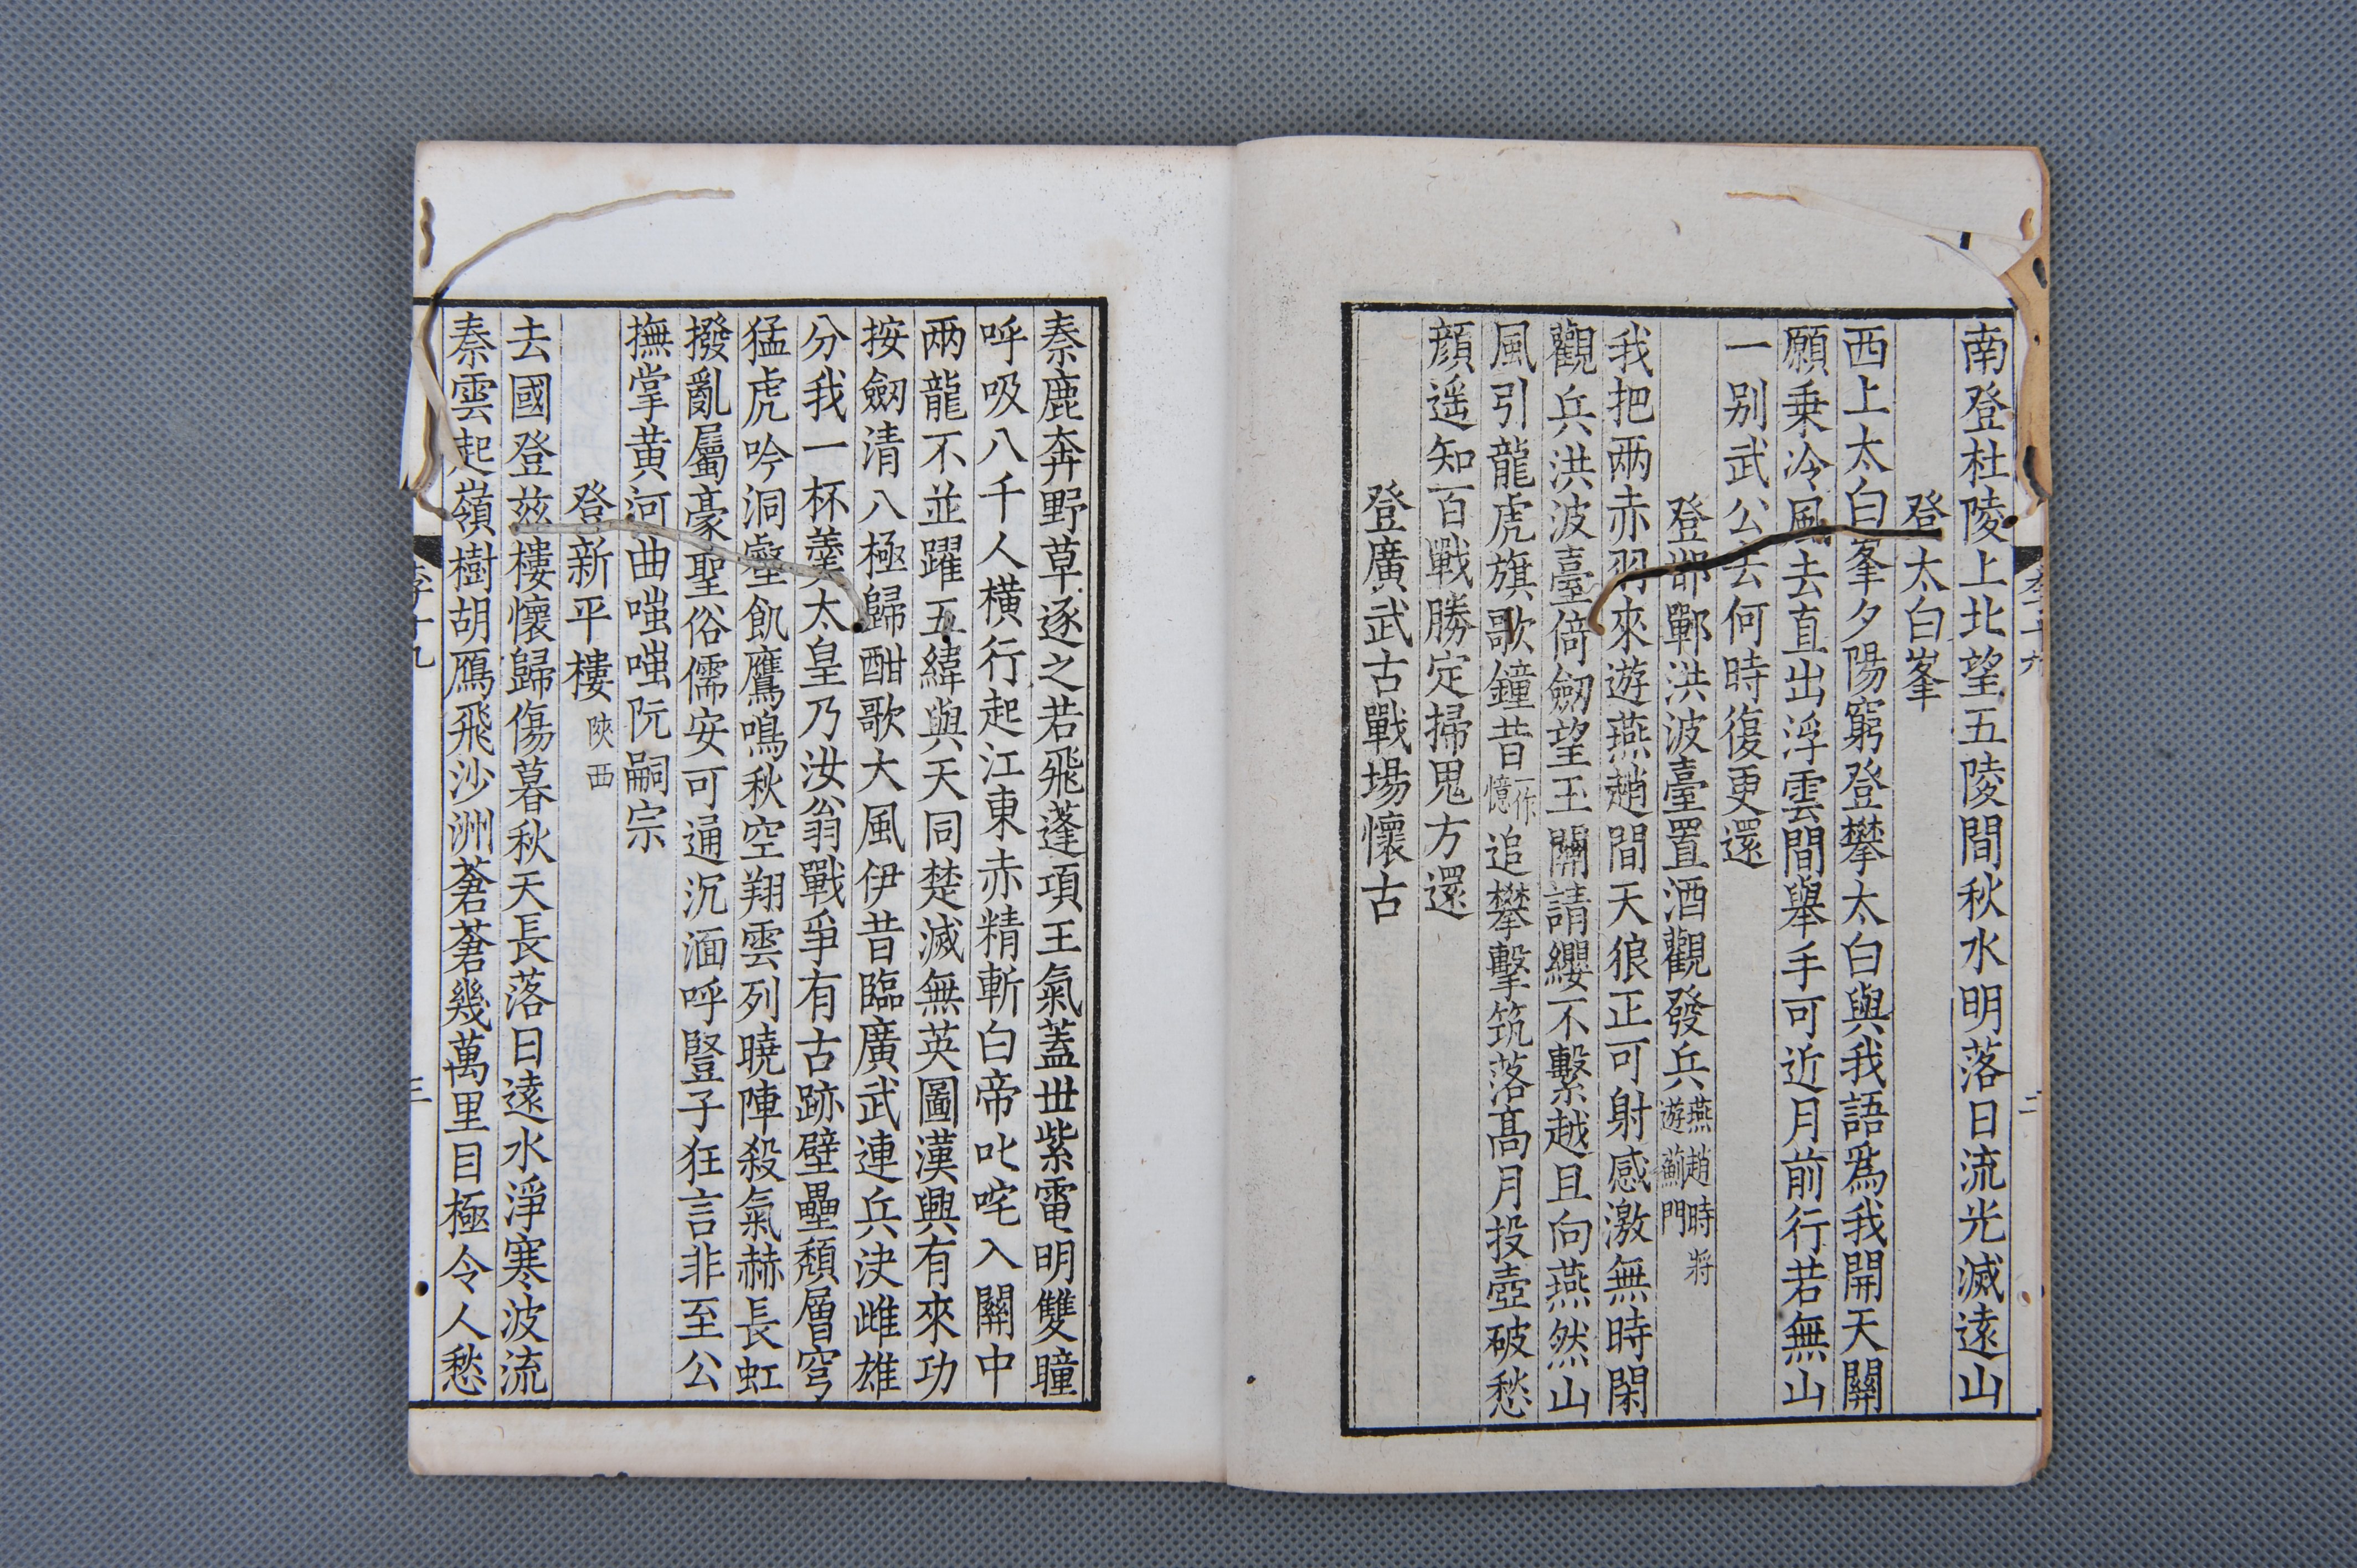 南登杜陵上北望五陵間秋水明落日流光滅遠山
登太白峯
西上太白峯夕陽窮登攀太白與我語爲我開天關
願乗冷風去直出浮雲間舉手可近月前行若無山
一别武公去何時復更還
登邯鄲洪波臺置酒觀發兵燕趙時將遊薊門
我把兩赤羽來遊燕趙間天狼正可射感激無時閑
觀兵洪波臺倚劒望玉關請纓不繫越且向燕然山
風引龍虎旗歌鐘昔一作憶追攀擊筑落髙月投壺破愁
顔遥知百戰勝定掃鬼方還
登廣武古戰場懷古
秦鹿奔野草逐之若飛蓬項王氣蓋世紫電明雙瞳
呼吸八千人横行起江東赤精斬白帝叱咤入關中
兩龍不並躍五緯與天同楚滅無英圖漢興有來功
按劒清八極歸酣歌大風伊昔臨廣武連兵決雌雄
分我一杯羹太皇乃汝翁戰爭有古跡壁壘頽層穹
猛虎吟洞壑飢鷹鳴秋空翔雲列曉陣殺氣赫長虹
撥亂屬豪聖俗儒安可通沉湎呼豎子狂言非至公
撫掌黄河曲嗤嗤阮嗣宗
登新平樓陜西
去國登茲樓懷歸傷暮秋天長落日遠水淨寒波流
秦雲起嶺樹胡鴈飛沙洲蒼蒼幾萬里目極令人愁
三